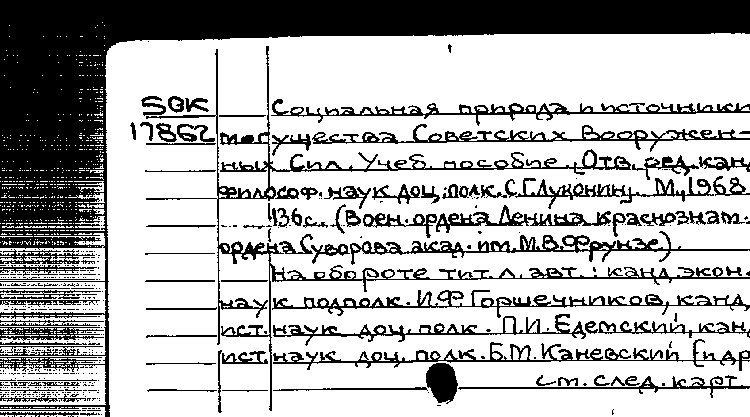 5ВК
17862
Социальная природа и источники
могущества Советских Вооружен-
ных Сил. Учеб. пособие. [Отв. ред. канд
философ. наук доц. полк. С.Г. Луконин]. М., 1968
136с. (Воен. ордена Ленина краснознам.
ордена Суворова акад. им. М.В. Фрунзе).
На обороте тит. л. авт.: канд. экон.
наук подполк. И.Ф. Горшечников, канд.
ист. наук доц. полк. П.И. Едемский, канд
ист. наук доц. полк. Б.М. Каневский [и др
см. след. карт